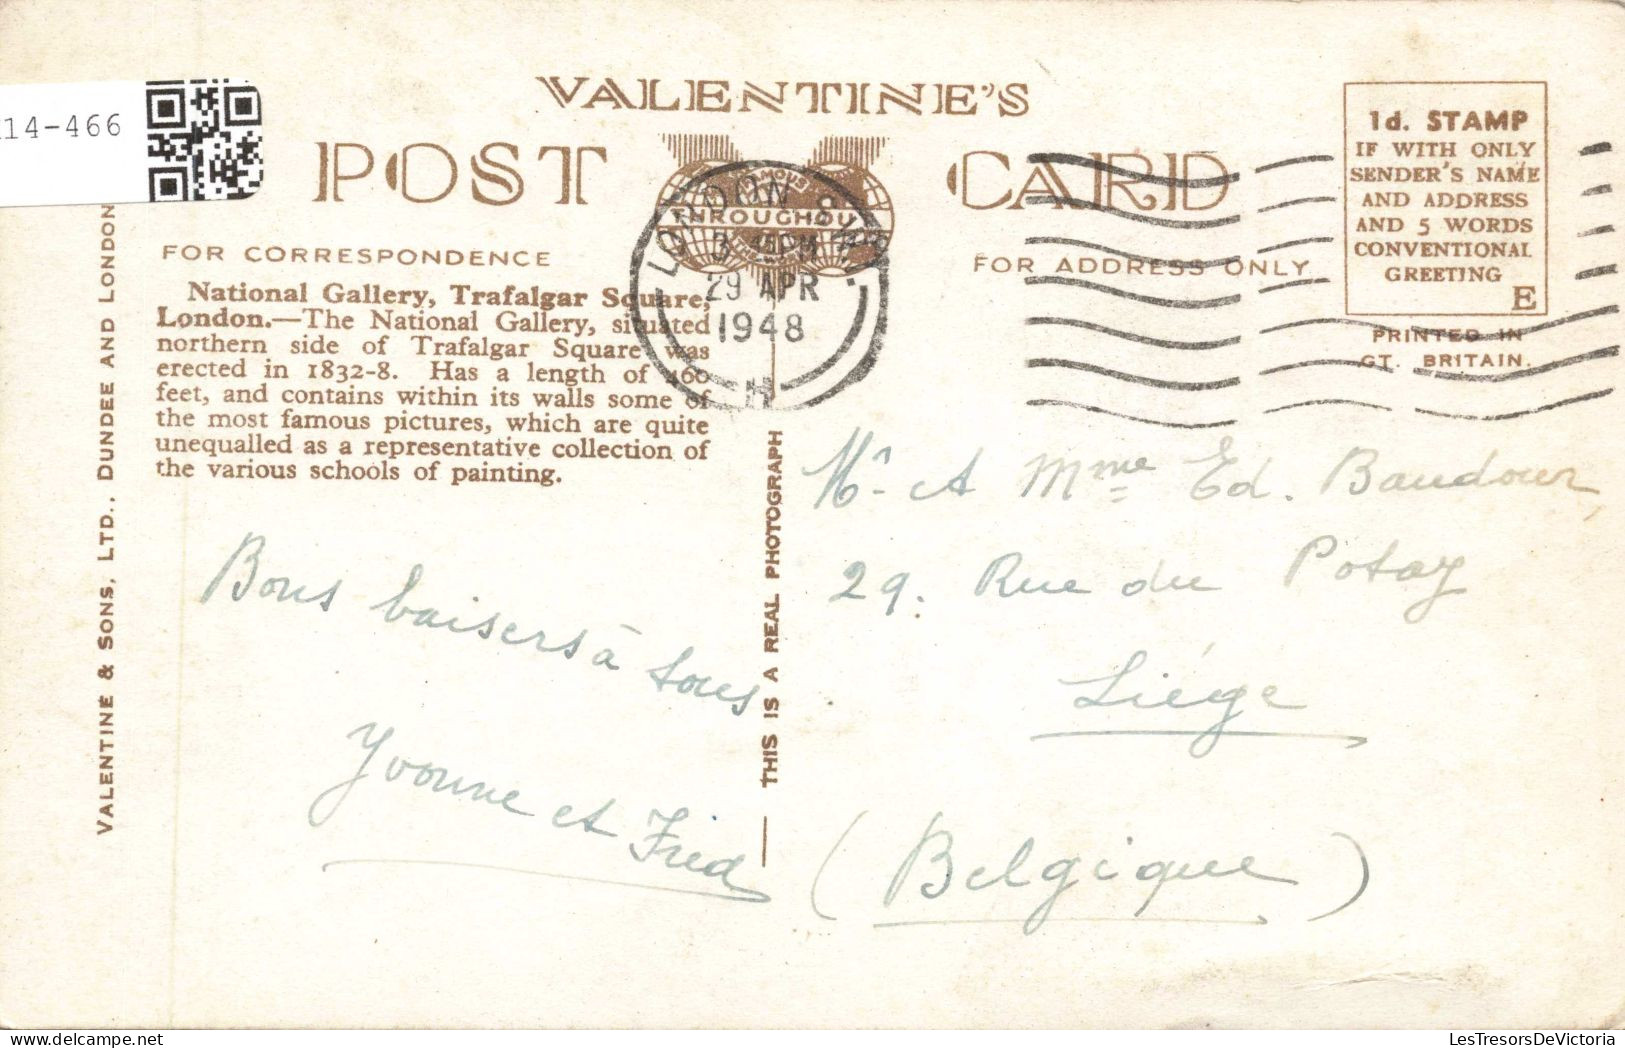 14-466
VALENTINE'S
POST CARD
FAMOUS
THROUGHOUT
THE WORLD
LONDON S.W.1.
3 45 PM
29 APR
1948
H
1d. STAMP
IF WITH ONLY
SENDER'S NAME
AND ADDRESS
AND 5 WORDS
CONVENTIONAL
GREETING
E
PRINTED IN
GT. BRITAIN.
FOR CORRESPONDENCE
FOR ADDRESS ONLY
National Gallery, Trafalgar Square,
London.—The National Gallery, situated
northern side of Trafalgar Square was
erected in 1832-8. Has a length of 460
feet, and contains within its walls some of
the most famous pictures, which are quite
unequalled as a representative collection of
the various schools of painting.
VALENTINE & SONS, LTD., DUNDEE AND LONDON
THIS IS A REAL PHOTOGRAPH
Bons baisers à tous
Yvonne et Fred
Mr et Mme Ed. Baudour,
29. Rue du Potay
Liége
(Belgique)
LesTresorsDeVictoria